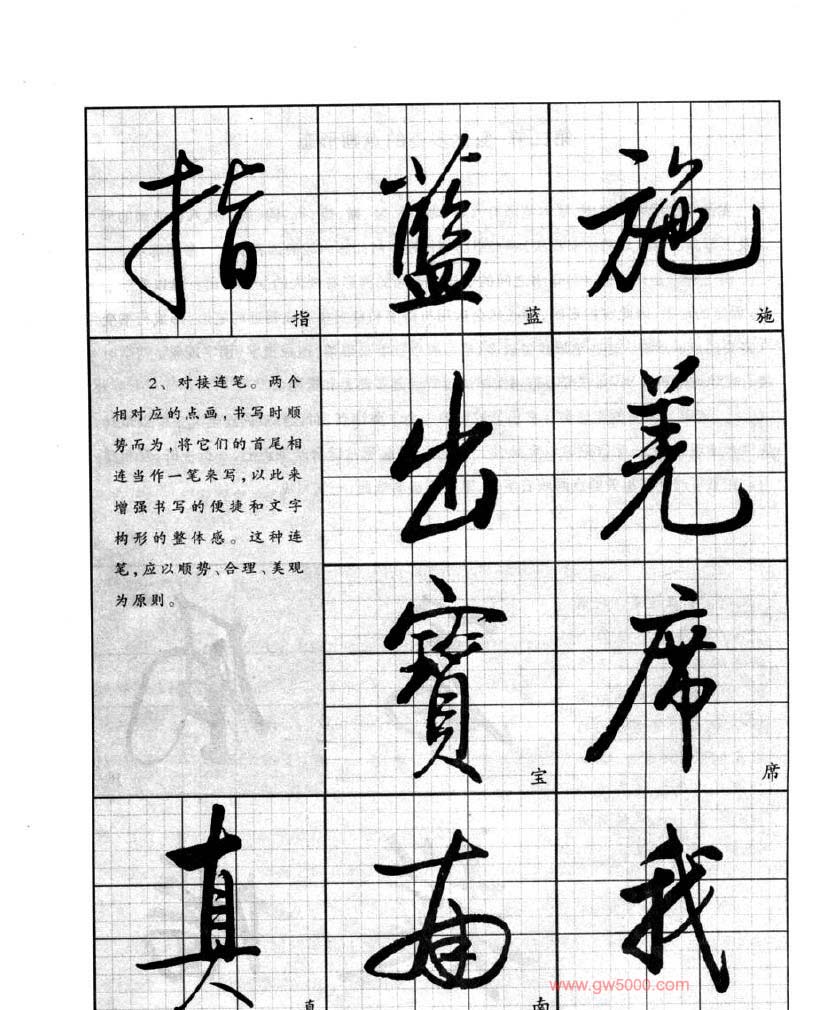 指 蓝 施
指 蓝 施
2、对接连笔。两个
相对应的点画,书写时顺
势而为,将它们的首尾相
连当作一笔来写,以此来
增强书写的便捷和文字
构形的整体感。这种连
笔,应以顺势、合理、美观
为原则。
出 羌
寶 席
宝 席
真 南 我
真 南
www.gw5000.com